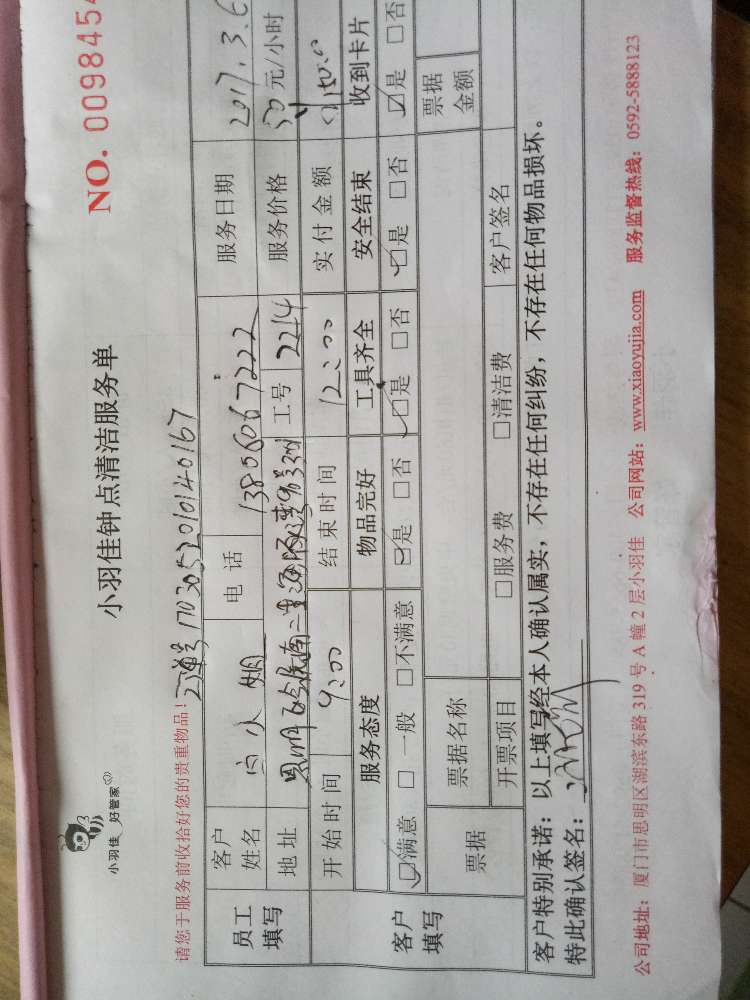 小羽佳 好管家
小羽佳钟点清洁服务单
NO. 0098454
请您于服务前收拾好您的贵重物品！
订单号 1703052010140167
员工填写
客户姓名 电话 13806067222 服务日期 2017.3.6
地址 思明区 工号 2214 服务价格 50元/小时
开始时间 9:00 结束时间 12:00 实付金额 150.0
客户填写
服务态度 物品完好 工具齐全 安全结束 收到卡片
☑满意 □一般 □不满意 ☑是 □否 ☑是 □否 ☑是 □否 ☑是 □否
票据 票据名称 票据金额
开票项目 □服务费 □清洁费 客户签名
客户特别承诺：以上填写经本人确认属实，不存在任何纠纷，不存在任何物品损坏。
特此确认签名：
公司地址：厦门市思明区湖滨东路 319 号 A 幢 2 层小羽佳 公司网站：www.xiaoyujia.com 服务监督热线：0592-5888123